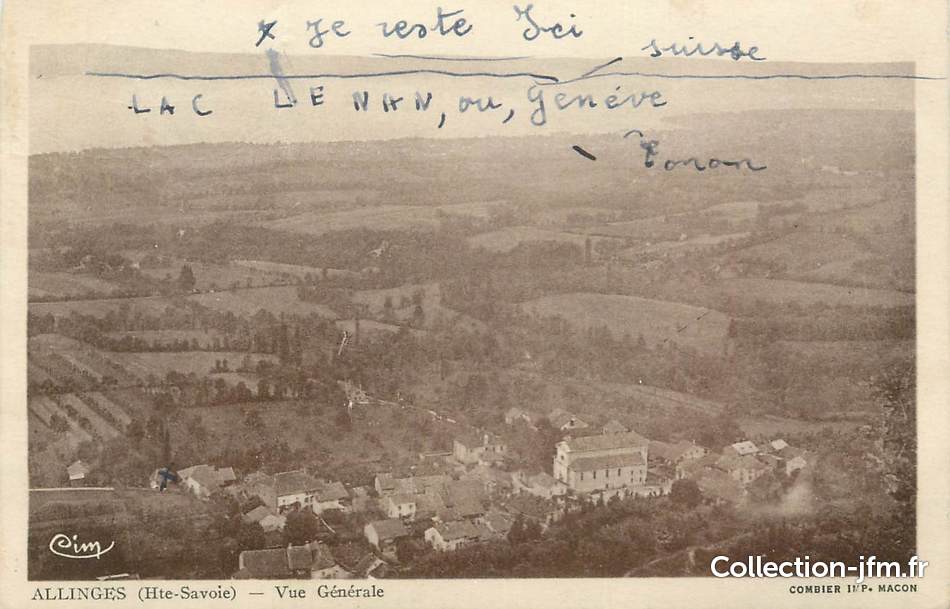 x je reste Ici
suisse
LAC LENAN, ou, Genéve
Tonon
x
Cim
Collection-jfm.fr
ALLINGES (Hte-Savoie) — Vue Générale
COMBIER IMP. MACON